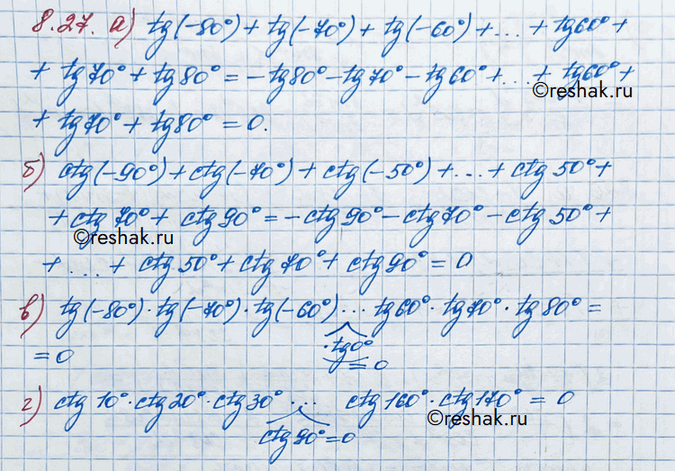 8.27. а) tg(-80°) + tg(-70°) + tg(-60°) + ... + tg60° +
+ tg70° + tg80° = -tg80° - tg70° - tg60° + ... + tg60° +
©reshak.ru
+ tg70° + tg80° = 0.
б) ctg(-90°) + ctg(-70°) + ctg(-50°) + ... + ctg50° +
+ ctg70° + ctg90° = -ctg90° - ctg70° - ctg50° +
©reshak.ru
+ ... + ctg50° + ctg70° + ctg90° = 0
в) tg(-80°)·tg(-70°)·tg(-60°) ... tg60°·tg70°·tg80° =
= 0
·tg0°
= 0
г) ctg10°·ctg20°·ctg30°· ... ctg160°·ctg170° = 0
©reshak.ru
ctg90°=0